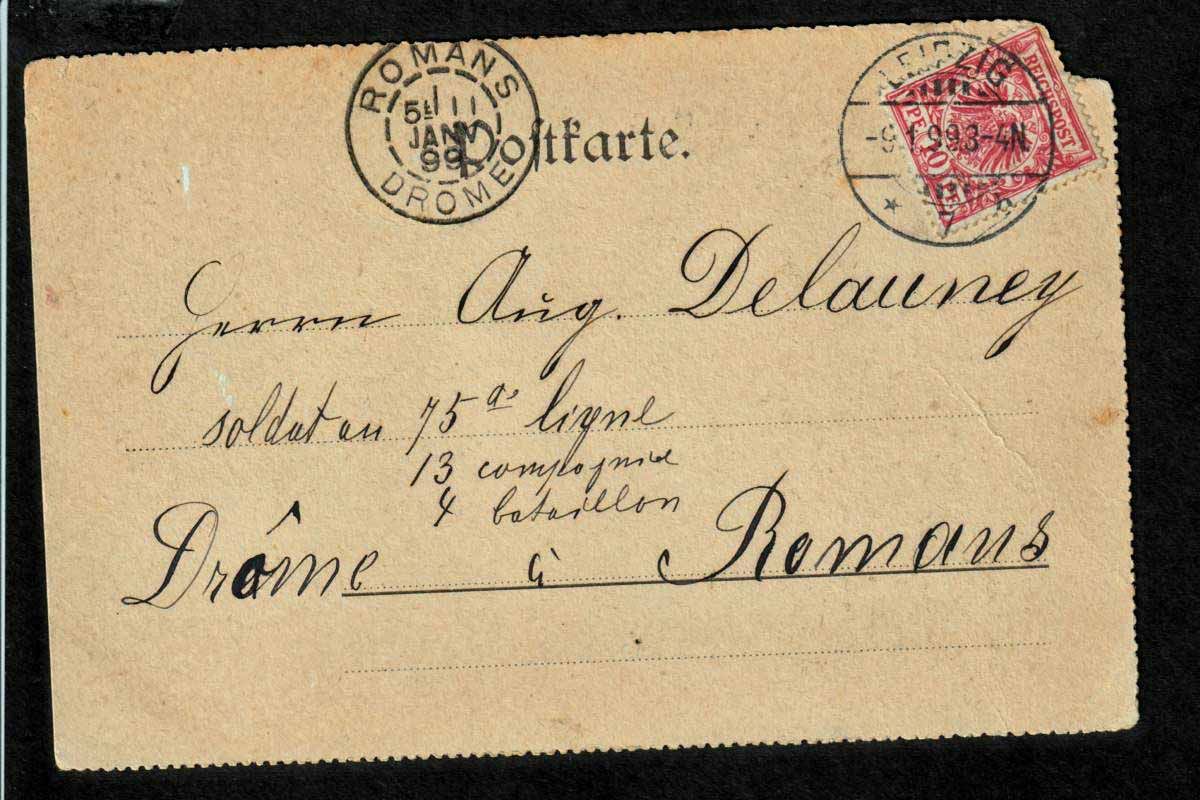 ROMANS
5E 11
JANV
99
DROME
Postkarte.
LEIPZIG
-9.1.99.3-4N.
REICHSPOST
10 PF
Herrn Aug. Delauney
soldat au 75e ligne
13 compagnie
4 bataillon
Drôme à Romans